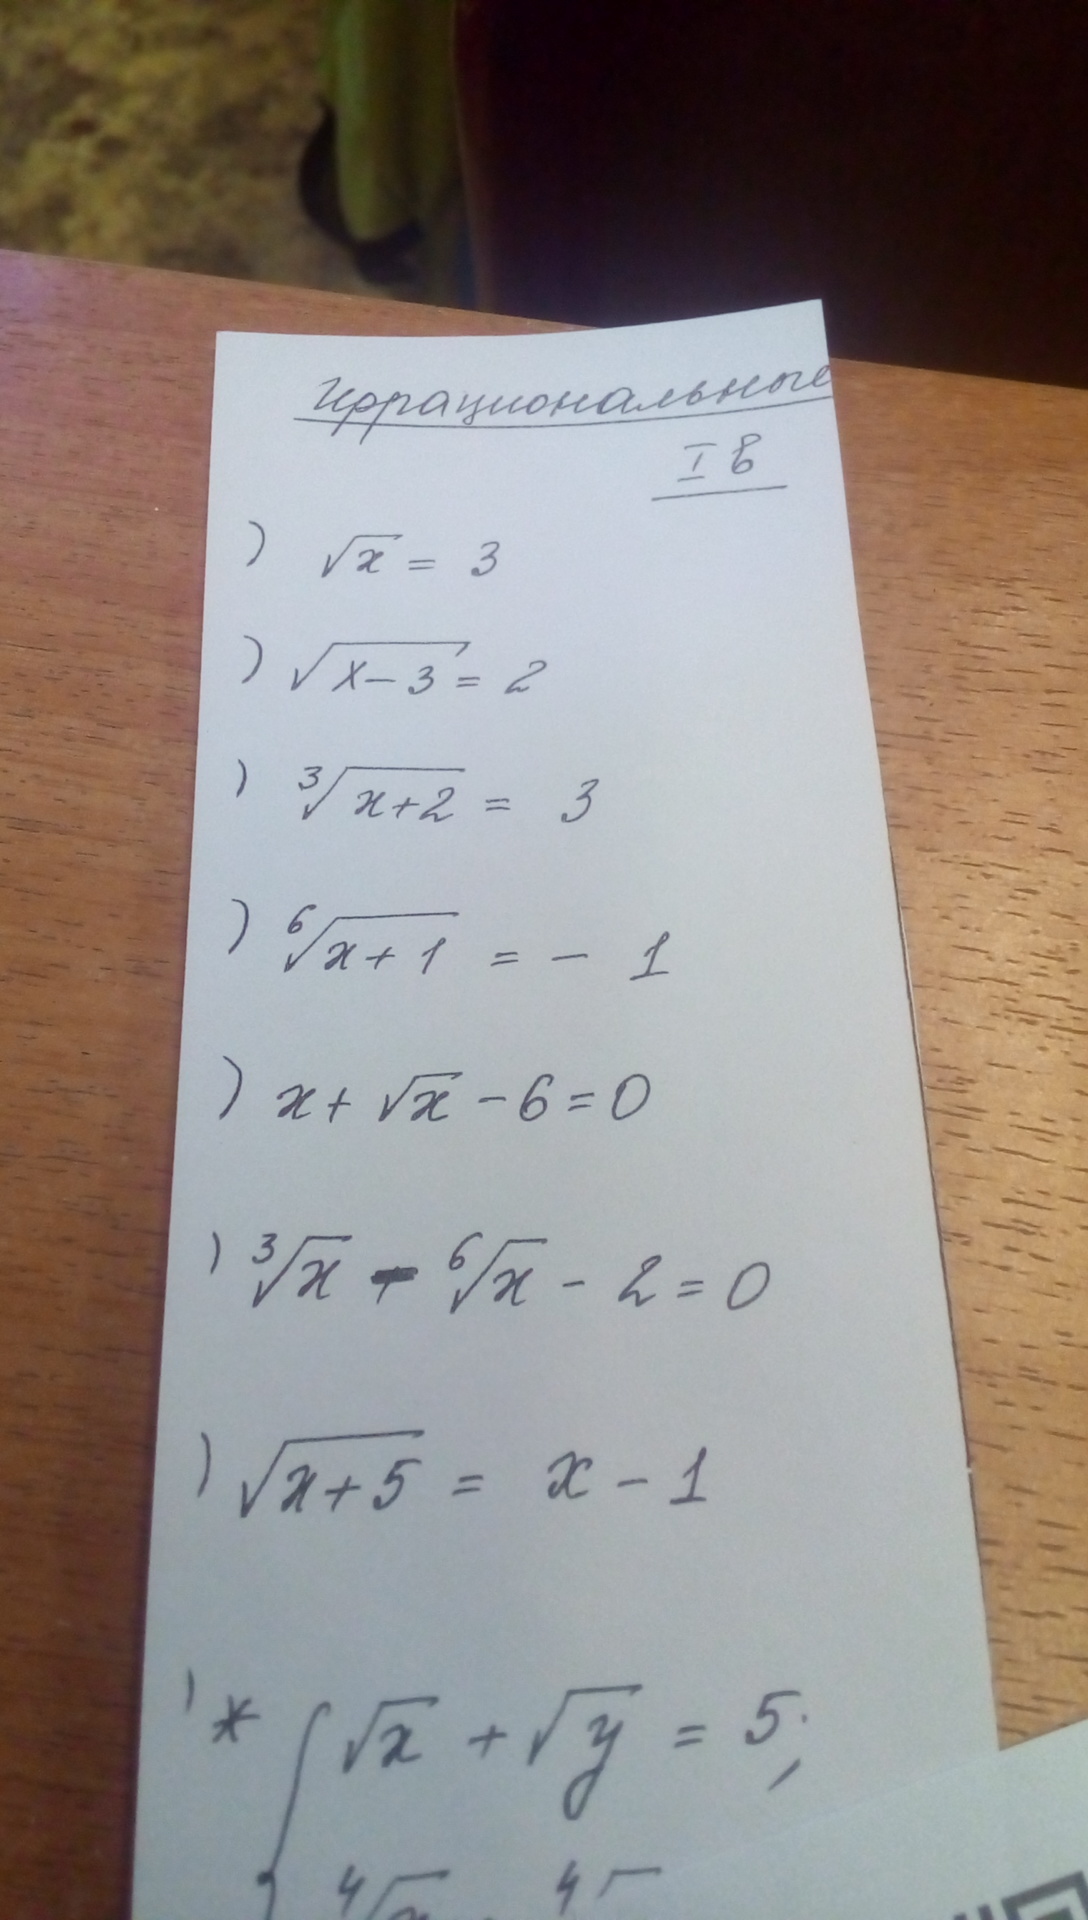 Иррациональные
I в
) √x = 3
) √(x-3) = 2
) ³√(x+2) = 3
) ⁶√(x+1) = - 1
) x + √x - 6 = 0
) ³√x - ⁶√x - 2 = 0
) √(x+5) = x - 1
) * { √x + √y = 5;
⁴√x ⁴√